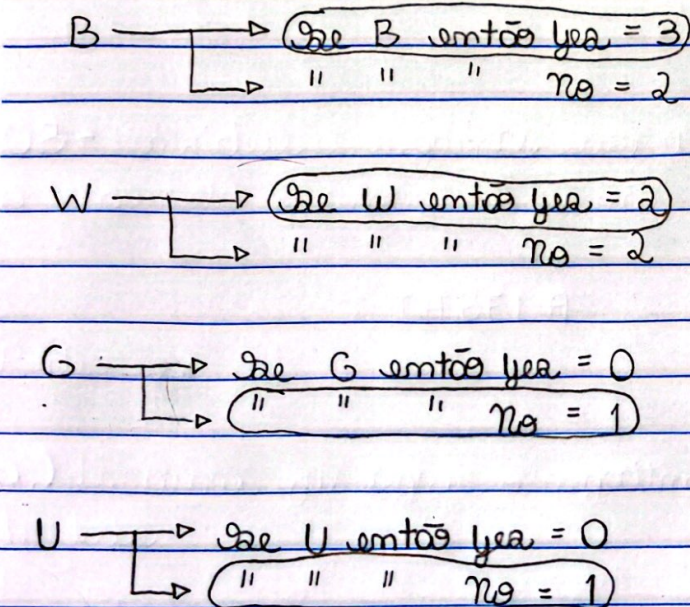 B Se B então yes = 3
" " " no = 2
W Se W então yes = 2
" " " no = 2
G Se G então yes = 0
" " " no = 1
U Se U então yes = 0
" " " no = 1